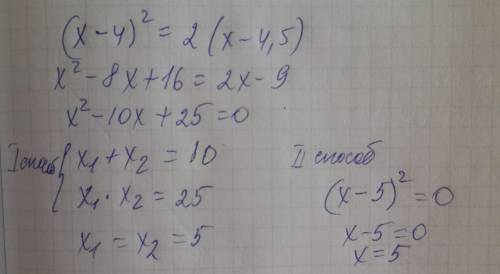 (x-4)² = 2(x-4,5)
x²-8x+16=2x-9
x²-10x+25=0
I способ { x₁+x₂ = 10
x₁·x₂ = 25
x₁ = x₂ = 5
II способ
(x-5)² = 0
x-5=0
x=5